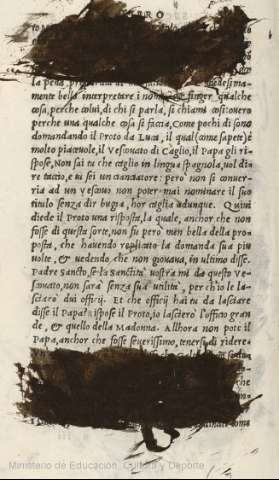 LIBRO
la pena,
mente bello interpretare i nomi, & finger qualche
cosa, perche colui, di chi si parla, si chiami cosi: overo
perche una qualche cosa si faccia, Come pochi dì sono
domandando il Proto da Luca, il qual (come sapete) è
molto piacevole, il Vescovato di Caglio, il Papa gli ri
spose, Non sai tu che caglio in lingua spagnola, vol di
re taccio, e tu sei un cianciatore: però non si conver-
ria ad un vescovo non poter mai nominare il suo
titulo senza dir bugia, hor caglia adunque. Quivi
diede il Proto una risposta, la quale, anchor che non
fosse di questa sorte, non fu però men bella della pro
posta, che havendo replicato la domanda sua piu
volte, & vedendo, che non giovava, in ultimo disse.
Padre Sancto, se la Sanctità vostra mi da questo ve-
scovato, non sarà senza sua utilità, perch'io le la-
sciarò dui officij. Et che officij hai tu da lasciare
disse il Papa? Rispose il Proto, io lasciarò l'officio gran
de, & quello della Madonna. Allhora non potè il
Papa, anchor che fosse severissimo, tenersi di ridere.
Ministerio de Educación, Cultura y Deporte